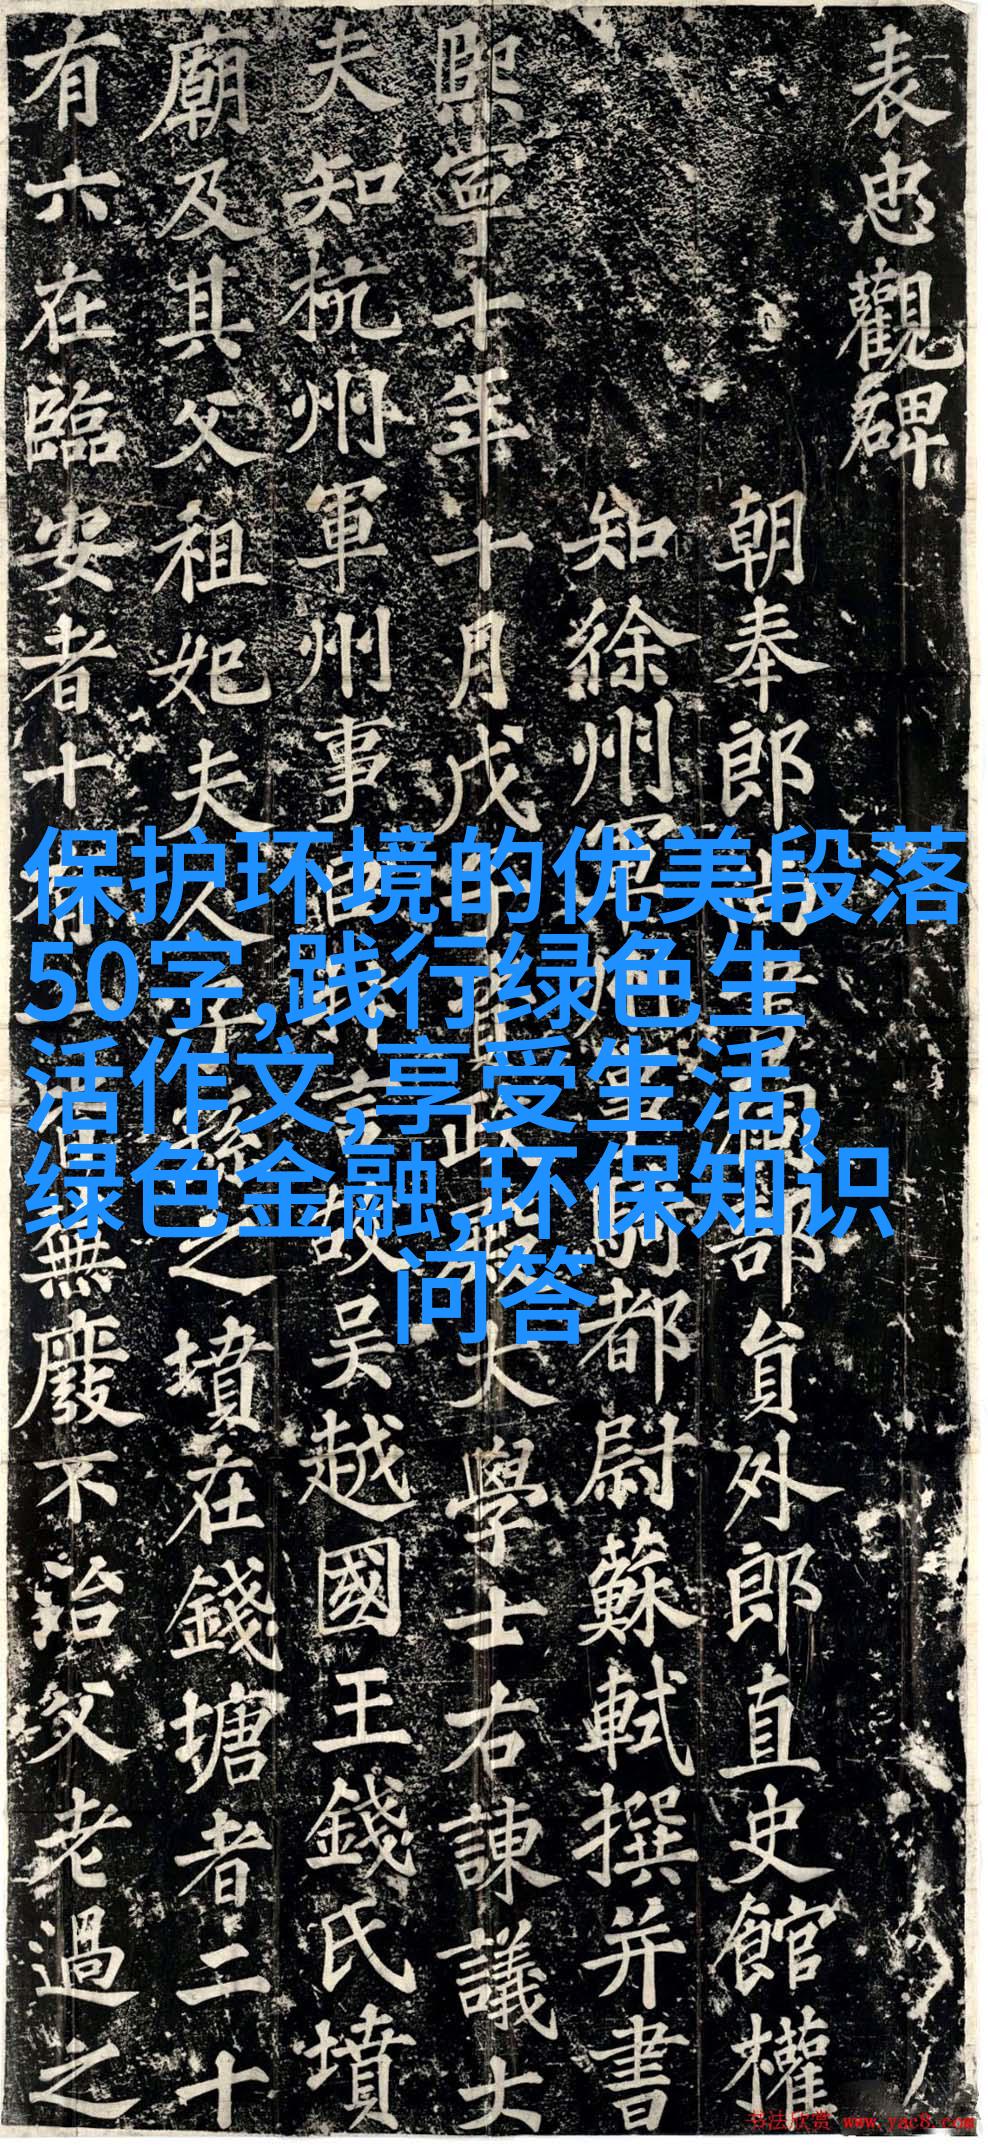 表忠觀碑
朝奉郎尚書祠部員外郎直史館權
知徐州軍州事騎都尉蘇軾撰并書
熙寧十年十月戊子資政殿大學士右諫議大
夫知杭州軍州事臣抃言故吳越國王錢氏墳
廟及其父祖妃夫人子孫之墳在錢塘者二十
有六在臨安者十有一皆蕪廢不治父老過之
保护环境的优美段落
50字,践行绿色生
活作文,享受生活,
绿色金融,环保知识
问答
书法欣赏 www.yac8.com